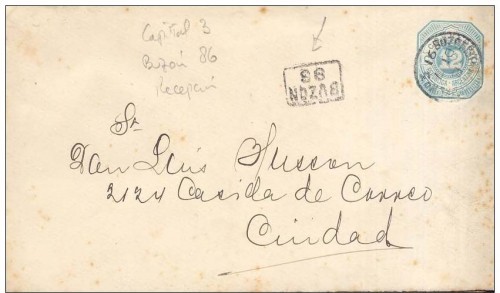 Capital 3
Buzón 86
Recepción
BUZÓN
86
Sr
Don Luis Huscon
2124 Casida de Correo
Ciudad